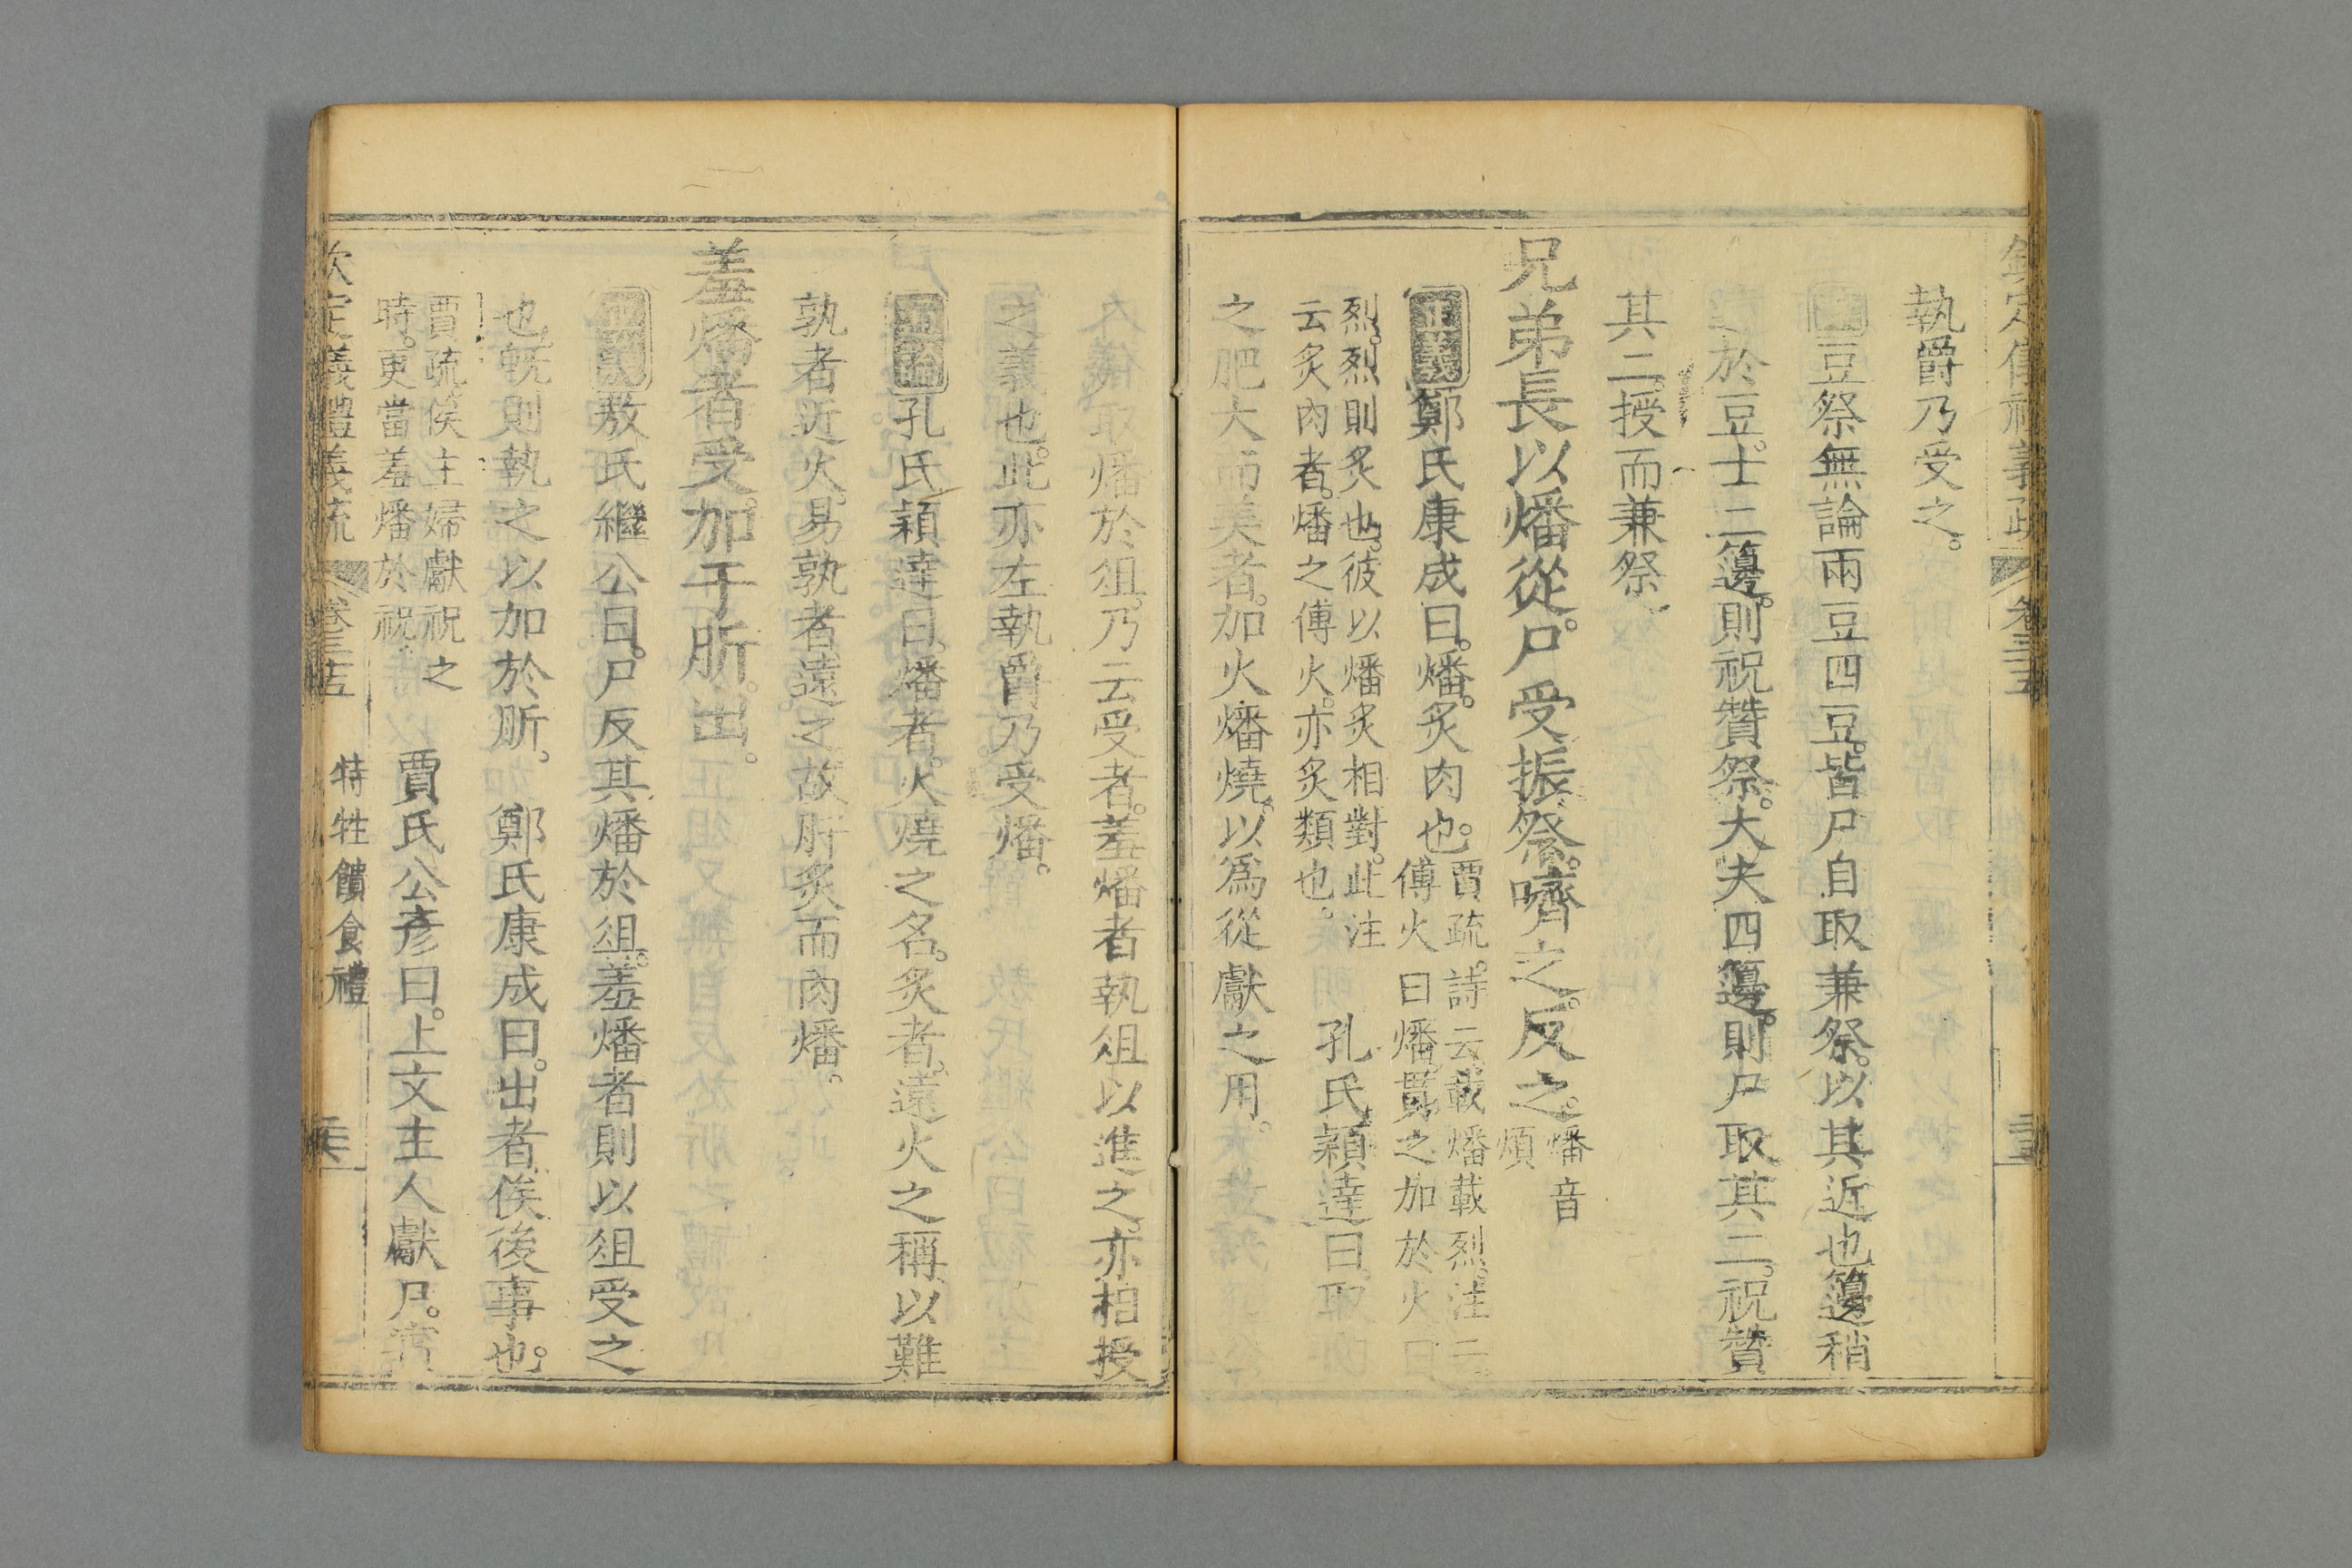 欽定儀禮義疏 卷三十五
執爵乃受之。
豆祭無論兩豆四豆。皆尸自取兼祭。以其近也。籩稍
於豆。士二籩。則祝贊祭。大夫四籩。則尸取其二。祝贊
其二。授而兼祭
兄弟長以燔從。尸受振祭。嚌之。反之。燔音
煩
正義鄭氏康成曰。燔。炙肉也。賈疏。詩云載燔載烈。注云。
傅火曰燔。貫之加於火曰
烈。烈則炙也。彼以燔炙相對。此注
云炙肉者。燔之傅火。亦炙類也。
孔氏穎達曰。取
之肥大而美者。加火燔燒。以為從獻之用。
儀 燔於俎。乃云受者。羞燔者執俎以進之。亦相授
之義也。此亦左執爵。乃受燔。
孔氏穎達曰。燔者。火燒之名。炙者。遠火之稱。以難
孰者近火。易孰者遠之。故肝炙而肉燔。
羞燔者受。加于肵。出。
敖氏繼公曰。尸反其燔於俎。羞燔者則以俎受之
也。旣則執之以加於肵。 鄭氏康成曰。出者俟後事也。
賈疏。俟主婦獻祝之
時。更當羞燔於祝。
賈氏公彥曰。上文主人獻尸。賓
欽定儀禮義疏 卷三十五 特牲饋食禮